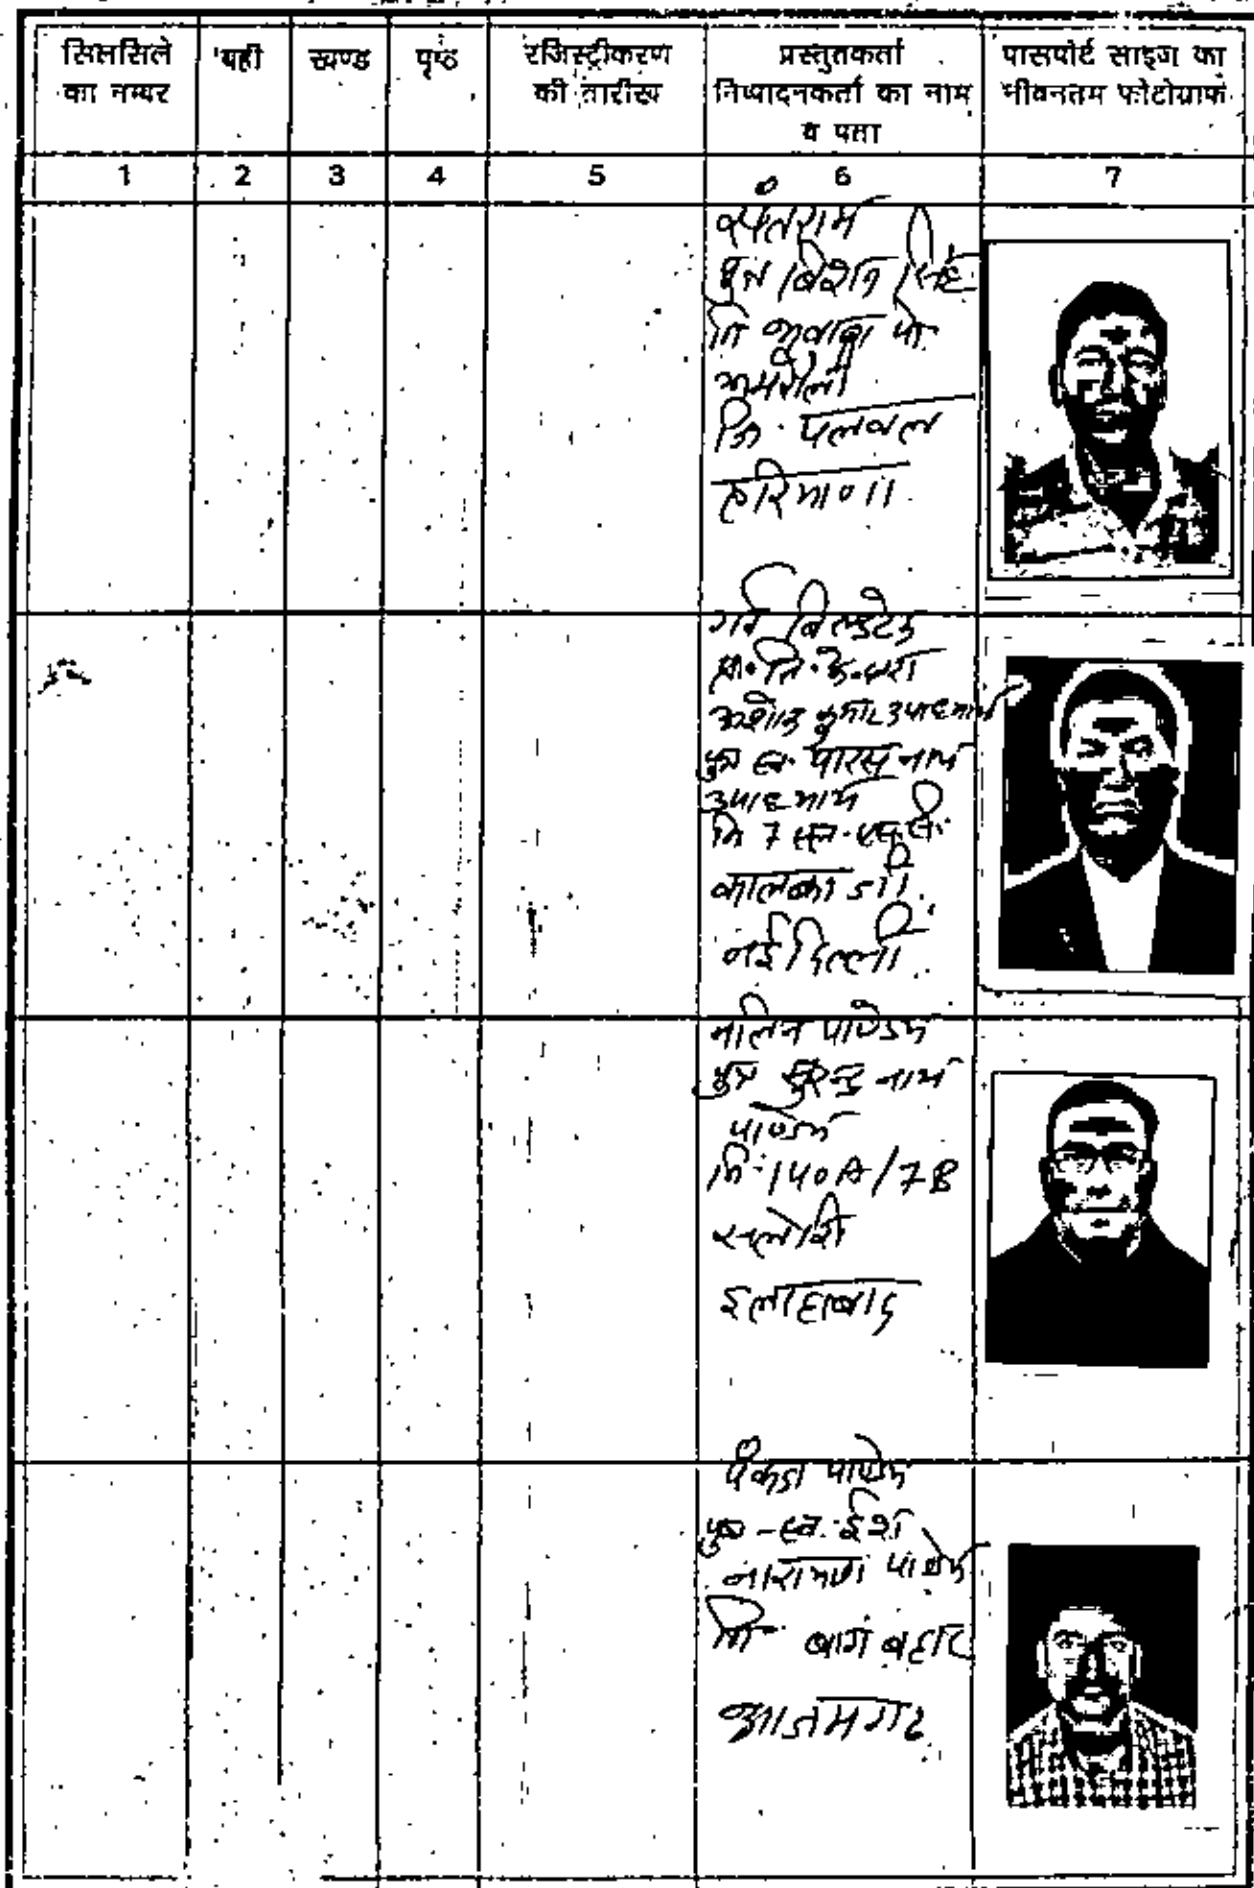 सिलसिले का नम्बर
बही
खण्ड
पृष्ठ
रजिस्ट्रीकरण की तारीख
प्रस्तुतकर्ता
निष्पादनकर्ता का नाम
व पता
पासपोर्ट साइज का
नवीनतम फोटोग्राफ
1 2 3 4 5 6 7
संतराम
पुत्र बिशन सिंह
नि पो
जि. पलवल
हरियाणा
गर्व बिल्डटेक
प्रा. लि. के. द्वारा
अशोक कुमार उपाध्याय
पुत्र स्व. पारस नाथ
उपाध्याय
नि 7
कालका जी
नई दिल्ली
नलिन पाण्डेय
पुत्र सुरेन्द्र नाथ
पाण्डेय
नि. 140A/7B
सलोरी
इलाहाबाद
पंकज पाण्डेय
पुत्र - स्व. ईश
नारायण पाण्डेय
नि बाग बहार
आजमगढ